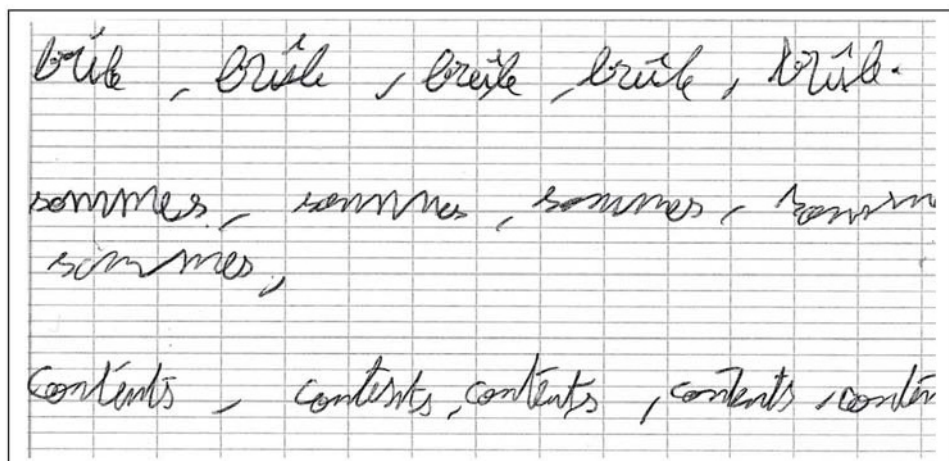 brûle , brûle , brûle , brûle , brûle.
sommes, sommes, sommes, somm
sommes,
contents, contents, contents, contents, conten